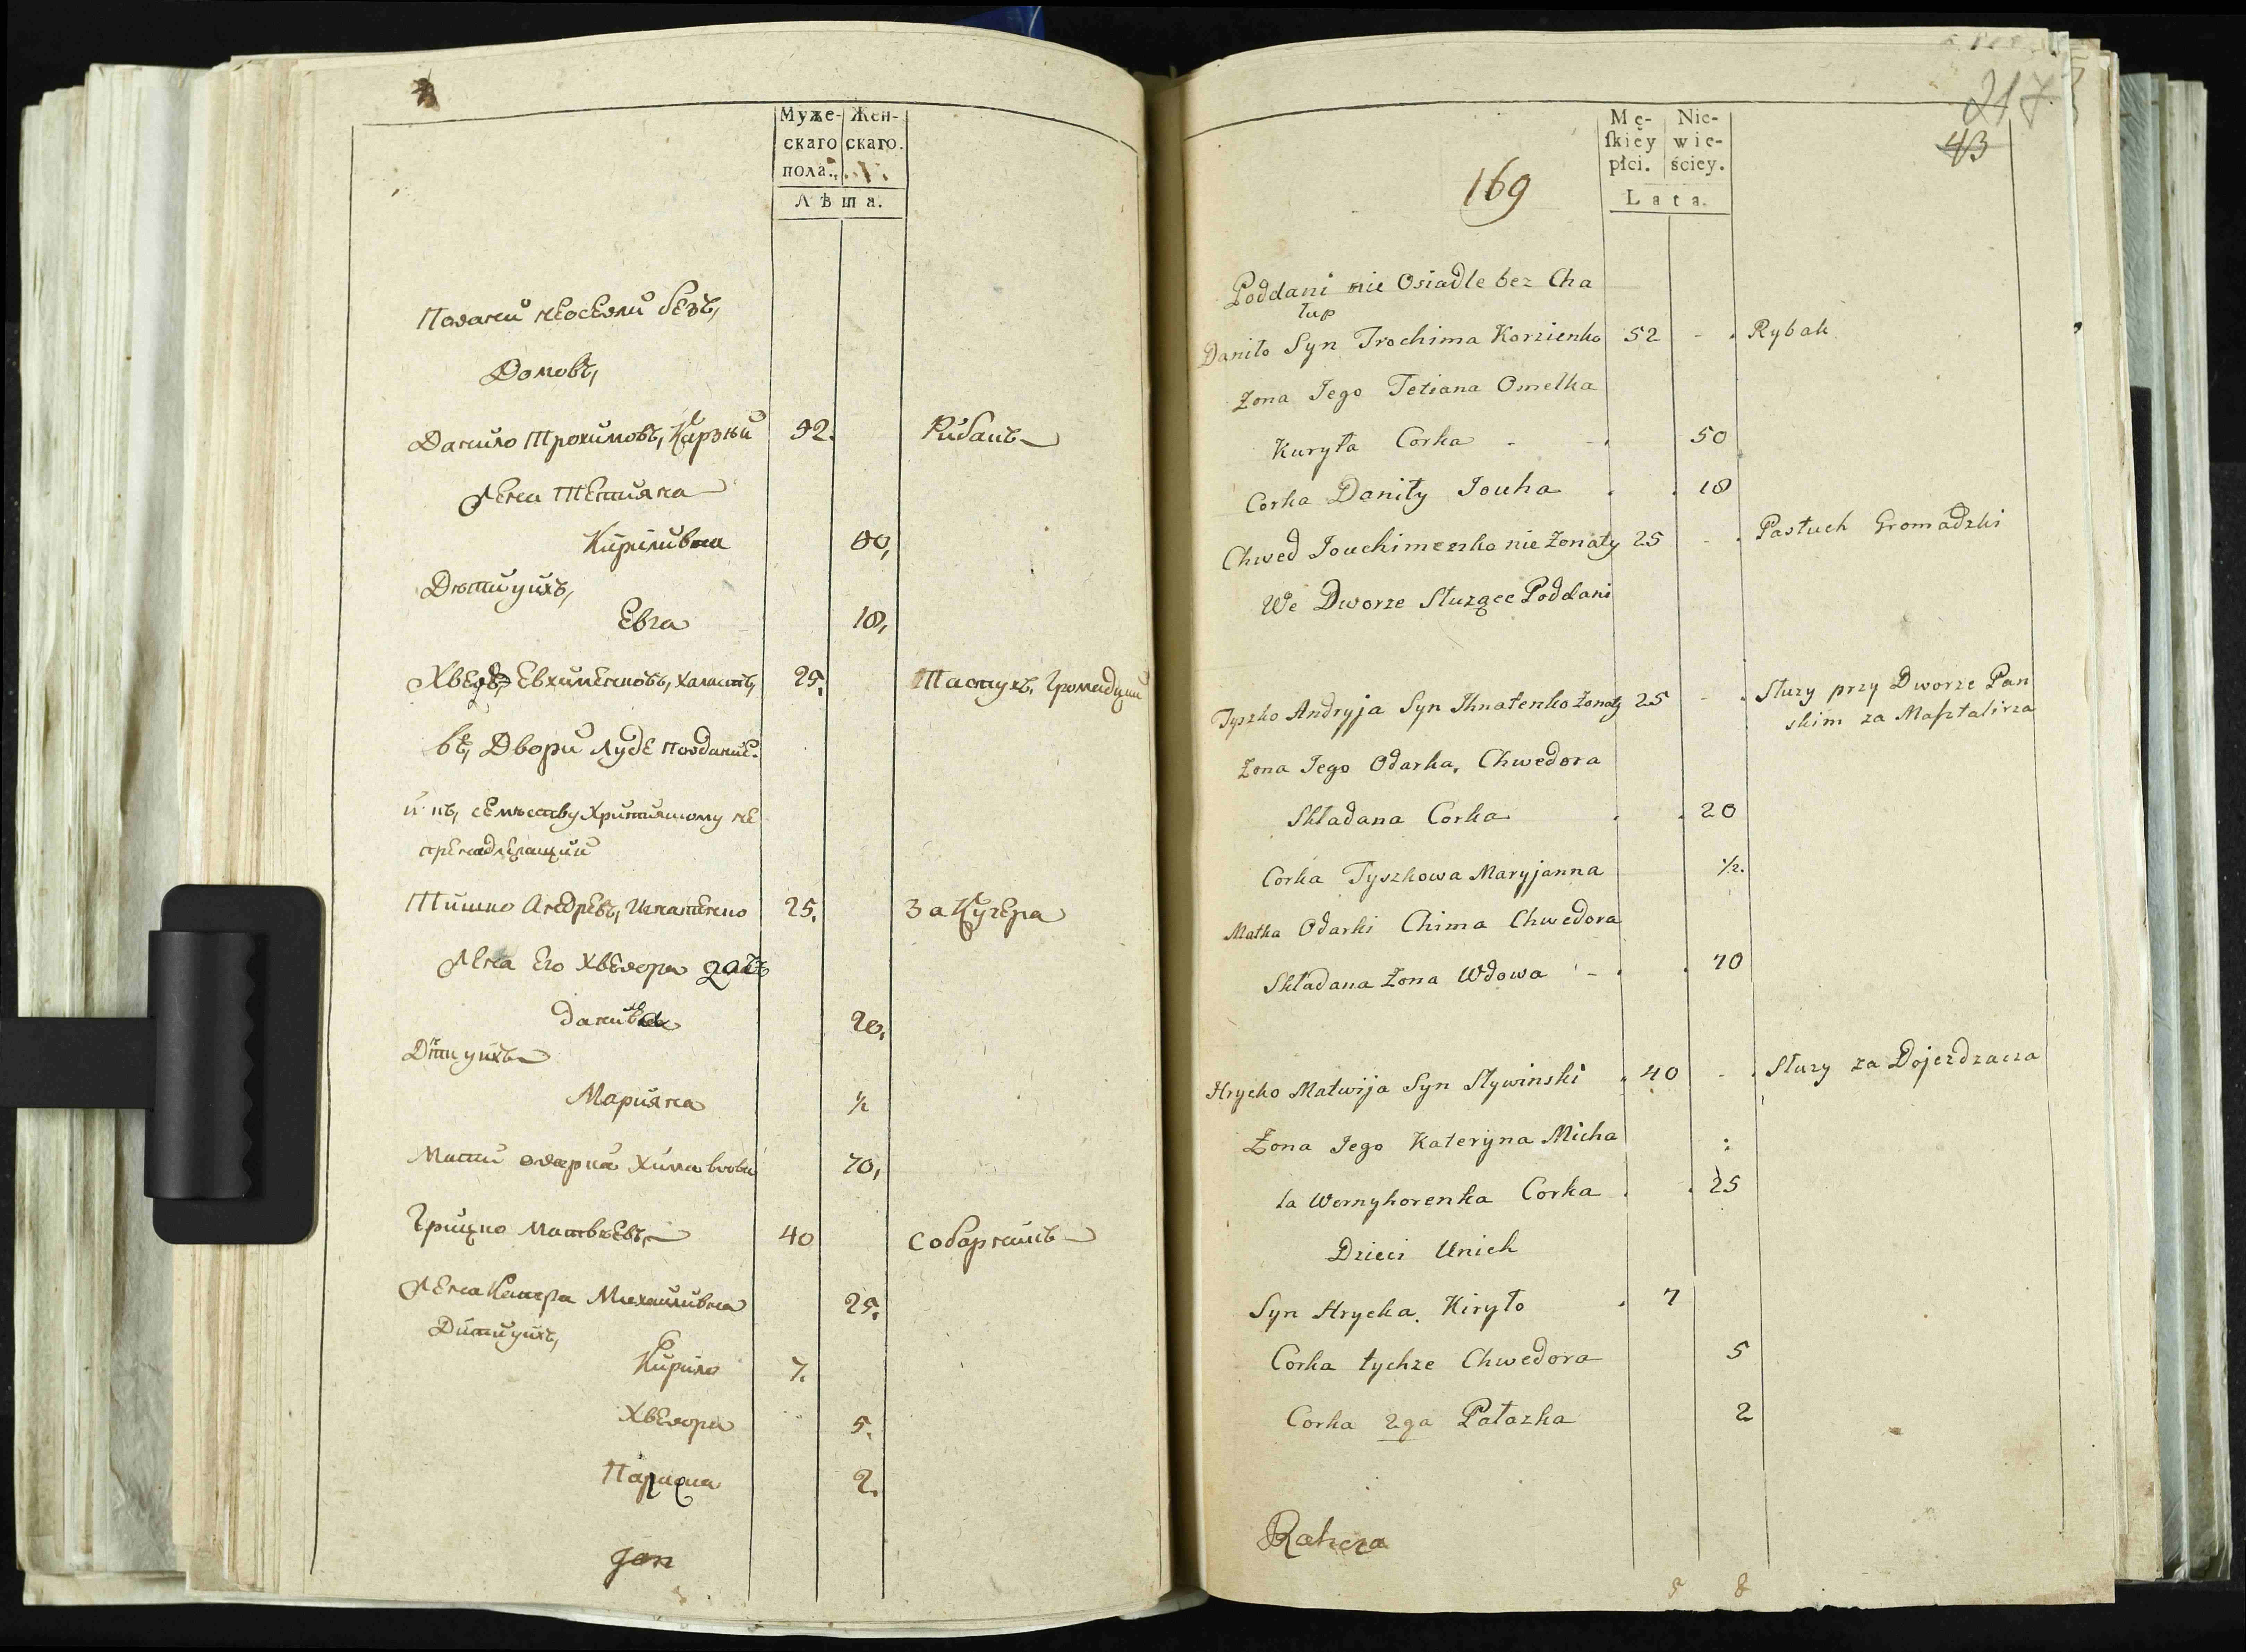 Муже- Жен-
скаго скаго.
пола.
Лѣта.
Домовъ,
Данило Трохимовъ, 52. Рибакъ
Жена Тетияна
Кириливна 50,
Дѣти ихъ,
Евга 18,
Хведъ Евхименковъ, холастъ, 25. Пастухъ Громадцкий
въ, Двори
Тишко Андрѣевъ, Игнатенко 25. За Кучера
Жена Его Хведора
20,
Дѣти ихъ
Марияна ½
Мати одарки Хима вдова 70,
Грицко Матвѣевъ, 40
Жена Катера Михайливна 25.
Дити ихъ,
Кирило 7.
Хведора 5.
2.
Jan
217
43
169
Mę- Nie-
ſkiéy wie-
płci. ściey.
Lata.
Poddani nie Osiadle bez Cha
łup
Daniło Syn Trochima Korzienko 52 - . Rybak
Żona Jego Tetiana Omelka
Kuryła Corka - - 50
Corka Daniły Jouha . . 18
Chwed Jouchimenko nie Żonaty 25 - . Pastuch Gromadzki
We Dworze Służące Poddani
Tyszko Andryja Syn Ihnatenko Żonaty 25 - . Służy przy Dworze Pan
skim za Masztalirza
Żona Jego Odarka, Chwedora
Składana Corka . . 20
Corka Tyszkowa Maryjanna ½.
Matka Odarki Chima Chwedora
Składana Żona Wdowa - . . 70
Hrycko Matwija Syn Slywinski . 40 - . Służy za Dojezdzacza
Żona Jego Kateryna Micha :
ła Wernyhorenka Corka . . 25
Dzieci Unich
Syn Hrycka, Kiryło . 7
Corka tychze Chwedora 5
Corka 2ga Połazka 2
5 8